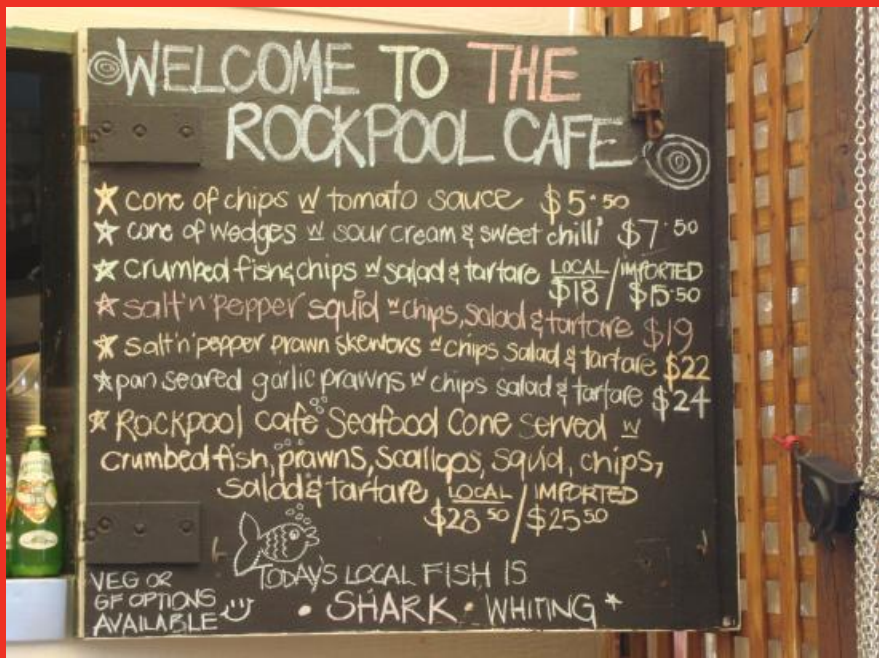 WELCOME TO THE
ROCKPOOL CAFE
cone of chips w tomato sauce $5.50
cone of wedges w sour cream & sweet chilli $7.50
crumbed fish & chips w salad & tartare LOCAL $18 / IMPORTED $15.50
salt 'n' pepper squid w chips, salad & tartare $19
salt 'n' pepper prawn skewers w chips salad & tartare $22
pan seared garlic prawns w chips salad & tartare $24
Rockpool cafe Seafood Cone served w
crumbed fish, prawns, scallops, squid, chips,
salad & tartare LOCAL $28 50 / IMPORTED $25 50
TODAY'S LOCAL FISH IS
• SHARK • WHITING
VEG OR
GF OPTIONS
AVAILABLE